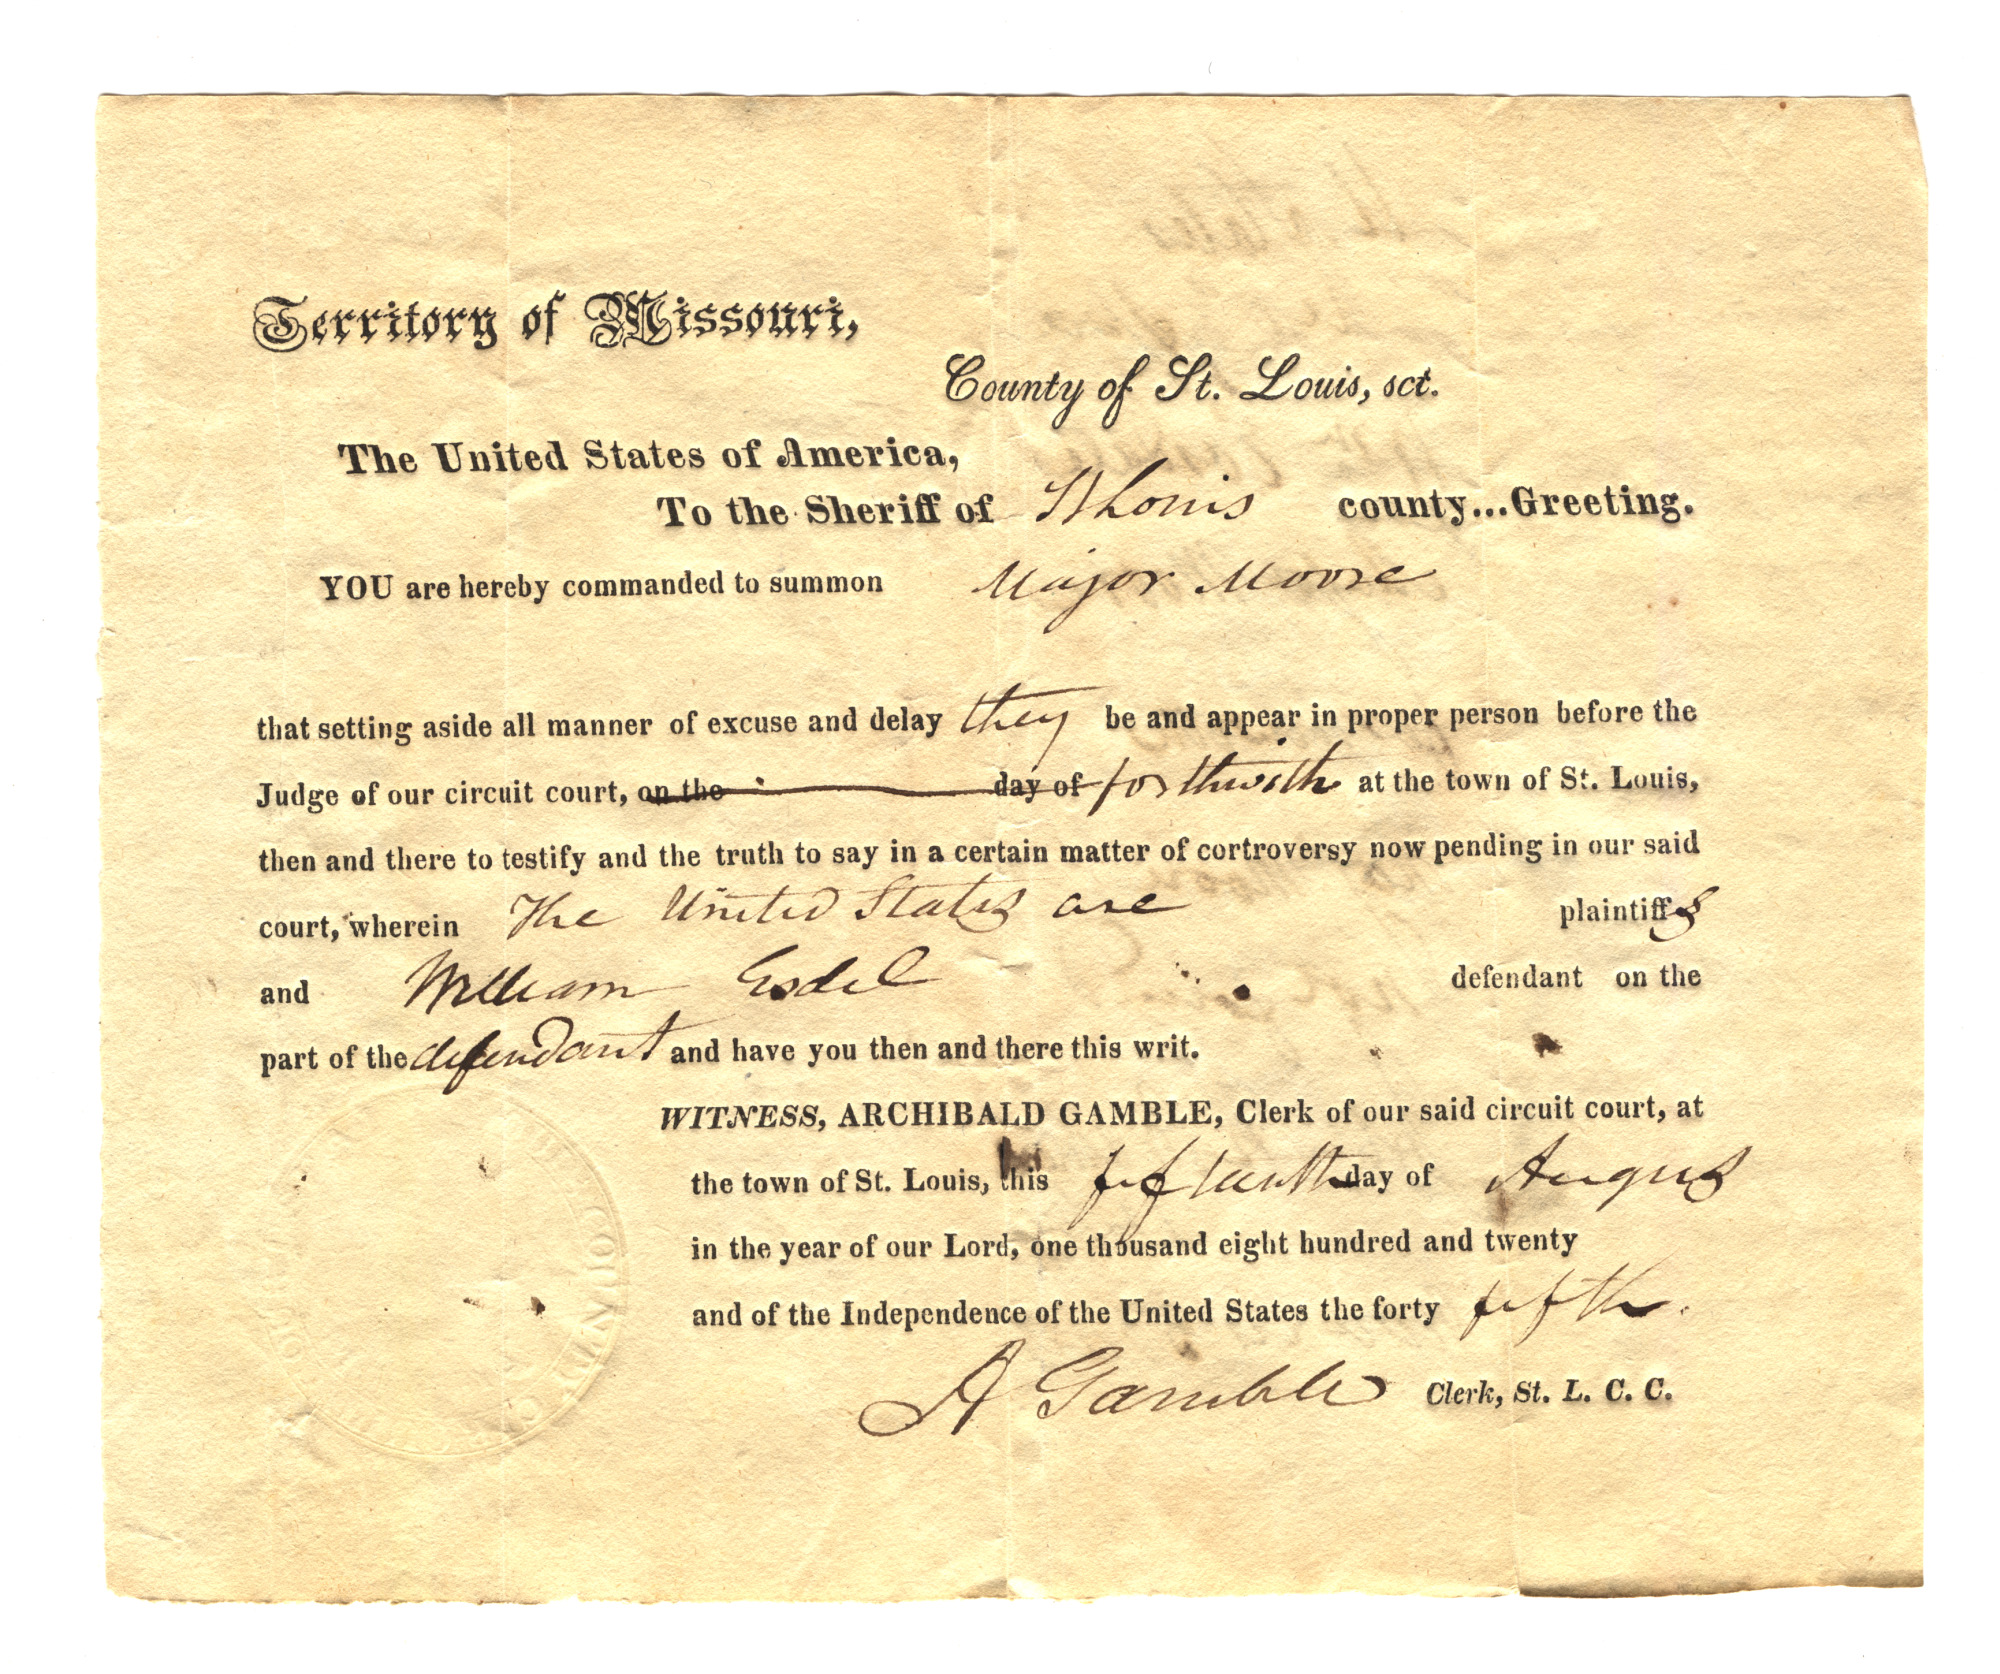 Territory of Missouri,
County of St. Louis, sct.
The United States of America,
To the Sheriff of St Louis county...Greeting.
YOU are hereby commanded to summon Major Moore
that setting aside all manner of excuse and delay they be and appear in proper person before the
Judge of our circuit court, on the day of forthwith at the town of St. Louis,
then and there to testify and the truth to say in a certain matter of cortroversy now pending in our said
court, wherein The United States are plaintiffs
and William Esdel defendant on the
part of the defendant and have you then and there this writ.
WITNESS, ARCHIBALD GAMBLE, Clerk of our said circuit court, at
the town of St. Louis, this fifteenth day of August
in the year of our Lord, one thousand eight hundred and twenty
and of the Independence of the United States the forty fifth.
A Gamble Clerk, St. L. C. C.